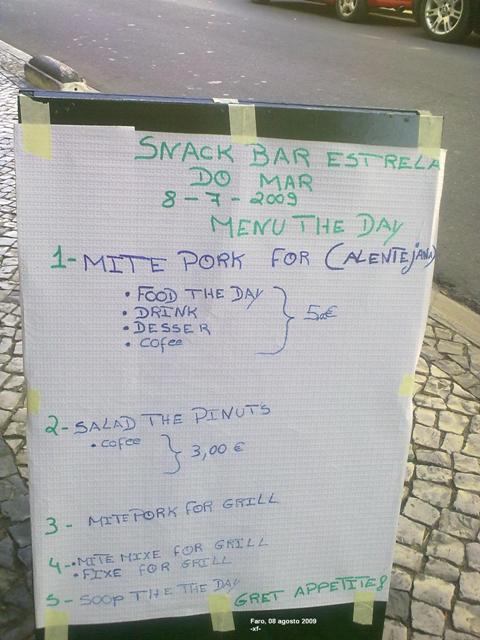 SNACK BAR ESTRELA
DO MAR
8-7-2009
MENU THE DAY
1- MITE PORK FOR (ALENTEjANA)
• FOOD THE DAY
• DRINK
• DESSER
• cofee
5,00€
2- SALAD THE PINUTS
• cofee
3,00 €
3 - MITE PORK FOR GRILL
4- • MITE MIXE FOR GRILL
• FIXE FOR GRILL
5- SOOP THE THE DAY
GRET APPETITE8
Faro, 08 agosto 2009
-xf-